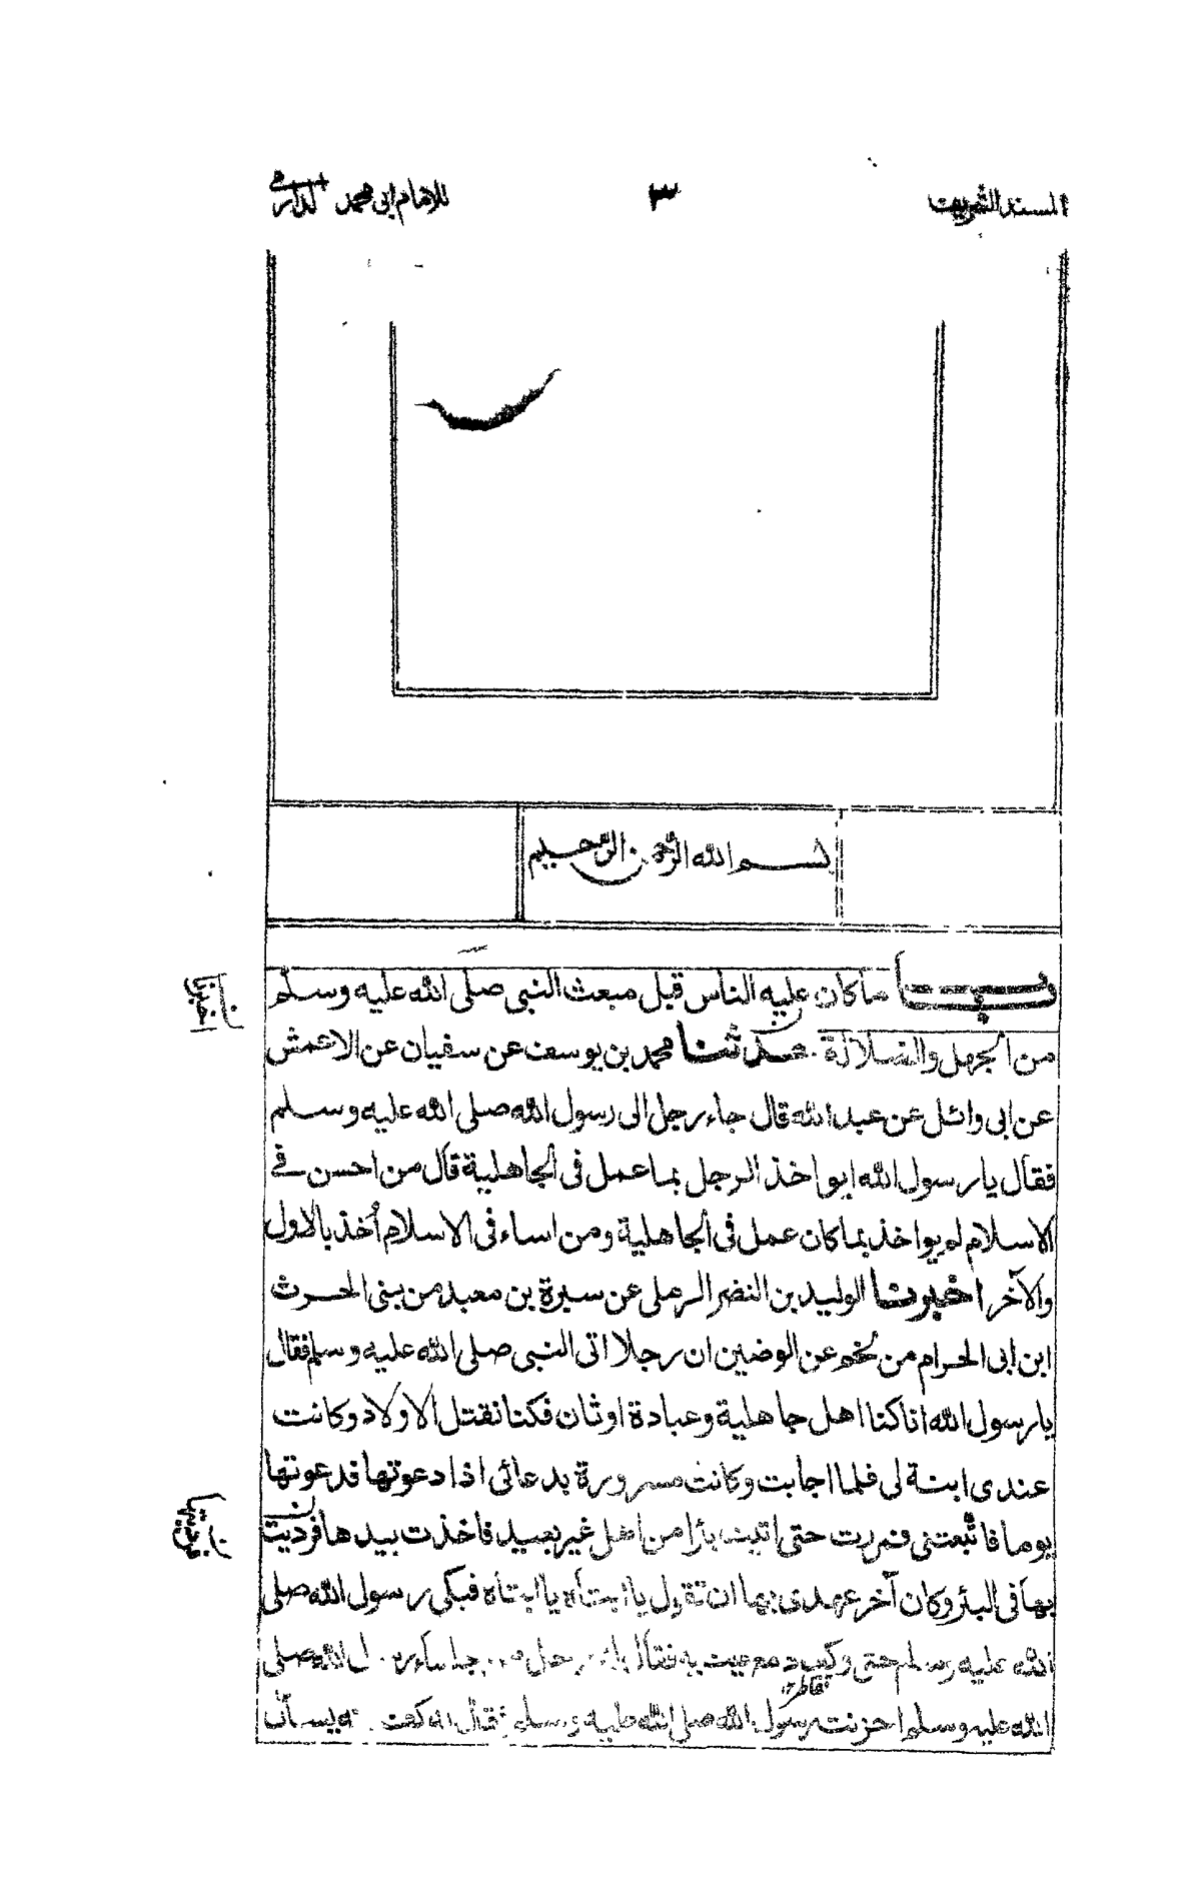 المسند الشريف ٣ للامام ابي محمد الدارمي
بسم الله الرحمن الرحيم
باب ما كان عليه الناس قبل مبعث النبي صلى الله عليه وسلم
اخبرنا
من الجهل والضلالة حدثنا محمد بن يوسف عن سفيان عن الاعمش
عن ابي وائل عن عبد الله قال جاء رجل الى رسول الله صلى الله عليه وسلم
فقال يا رسول الله ايواخذ الرجل بما عمل في الجاهلية قال من احسن في
الاسلام لم يواخذ بما كان عمل في الجاهلية ومن اساء في الاسلام أخذ بالاول
والآخر اخبرنا الوليد بن النضر الرملي عن سبرة بن معبد من بني الحرث
ابن ابي الحرام من لخم عن الوضين ان رجلا اتى النبي صلى الله عليه وسلم فقال
يا رسول الله انا كنا اهل جاهلية وعبادة اوثان فكنا نقتل الاولاد وكانت
عندي ابنة لي فلما اجابت وكانت مسرورة بدعائي اذا دعوتها فدعوتها
يوما فاتبعتني فمررت حتى اتيت بئرا من اهلي غير بعيد فاخذت بيدها فرديت
بها في البئر وكان آخر عهدي بها ان تقول يا ابتاه يا ابتاه فبكى رسول الله صلى
الله عليه وسلم حتى وكف دمع عينيه فقال له رجل من جلساء رسول الله صلى
الله عليه وسلم احزنت رسول الله صلى الله عليه وسلم فقال له كف فانه يسأل